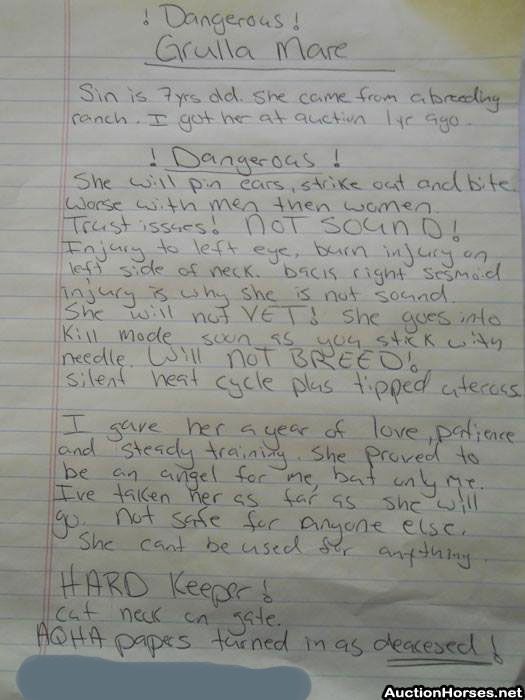 ! Dangerous !
Grulla Mare
Sin is 7yrs old. She came from a breeding
ranch. I got her at auction 1yr ago.
! Dangerous !
She will pin ears, strike out and bite.
Worse with men then women.
Trust issues! NOT SOUND!
Injury to left eye, burn injury on
left side of neck. back right sesmoid
injury is why she is not sound.
She will not VET! She goes into
Kill mode soon as you stick with
needle. Will not BREED!
silent heat cycle plus tipped uteross.
I gave her a year of love, patience
and steady training. She proved to
be an angel for me, but only me.
I've taken her as far as she will
go. Not safe for anyone else.
She cant be used for anything.
HARD Keeper!
cut neck on gate.
AQHA papes turned in as deacesed!
AuctionHorses.net